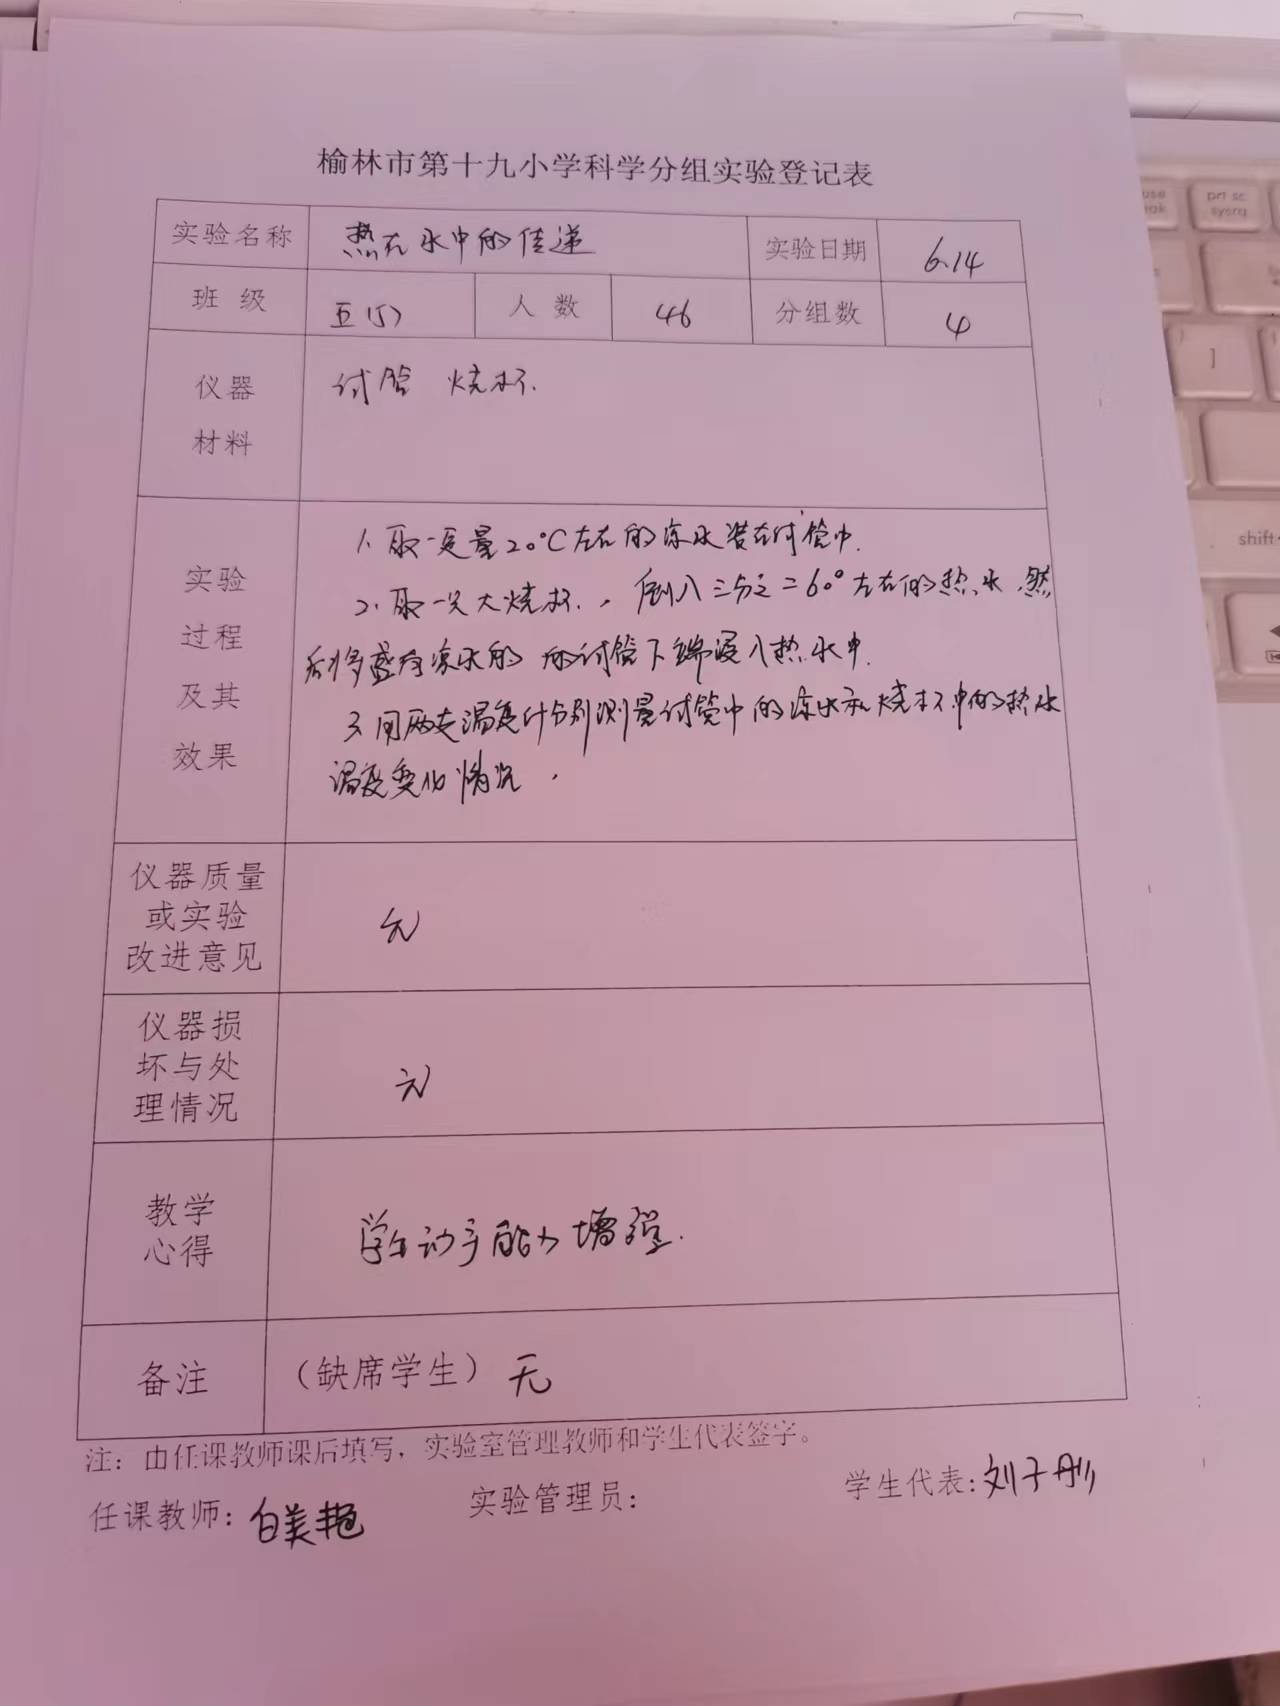 榆林市第十九小学科学分组实验登记表
实验名称 热在水中的传递 实验日期 6.14
班 级 五(5) 人 数 46 分组数 4
仪器
材料
试管 烧杯.
实验
过程
及其
效果
1. 取一定量20°C左右的凉水装在试管中.
2. 取一只大烧杯., 倒入三分之二60°左右的热水,然
后将盛有凉水的 的试管下端浸入热水中.
3. 用两支温度计分别测量试管中的凉水和烧杯中的热水
温度变化情况.
仪器质量
或实验
改进意见
无
仪器损
坏与处
理情况
无
教学
心得
学生动手能力增强.
备注 (缺席学生) 无
注:由任课教师课后填写,实验室管理教师和学生代表签字。
任课教师: 白美艳 实验管理员: 学生代表: 刘子彤
prt sc
sysrq
]
shift